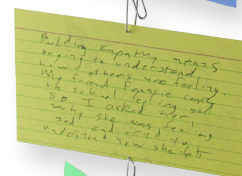 Building Empathy means
trying to understand
how others are feeling.
My friend came
to school feeling sad
so I asked her
why she was feeling
sad and tried to
understand how she felt